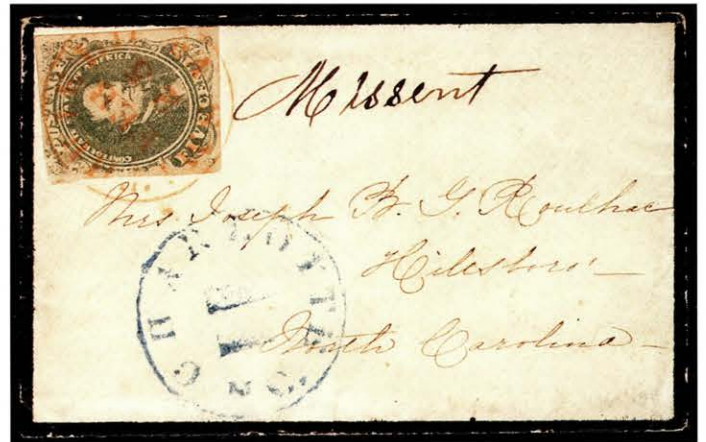 CONFEDERATE STATES OF AMERICA
Missent
Mrs. Joseph B. G. Roulhac
Hilesboro'
North Carolina
CHARLOTTE
N.C.